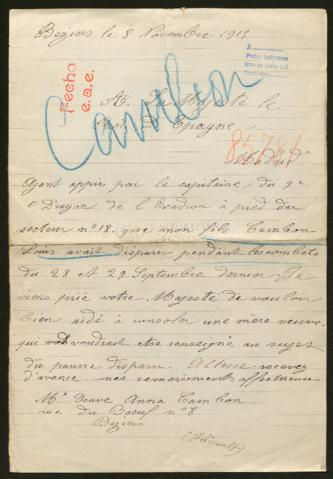 Béziers le 8 Novembre 1915
Fecho
e.a.e.
A Sa Majesté le
Roi D'Epagne
Cambon
85781
Madrid
Ayant appris par le capitaine du 9e
Dragon de l'Escadron à pied du
secteur n° 18. que mon fils Cambon
Louis avait disparu pendant les combats
du 28 et 29 Septembre dernier Je
viens prié votre Majesté de vouloir
bien aidé à consoler une mère veuve
qui voudrait etre renseigné au sujet
du pauvre disparu. Altesse recevez
d'avance mes remerciment affectueux
Mme Veuve Anna Cambon
rue du Boeuf n° 8
Béziers
(Hérault)